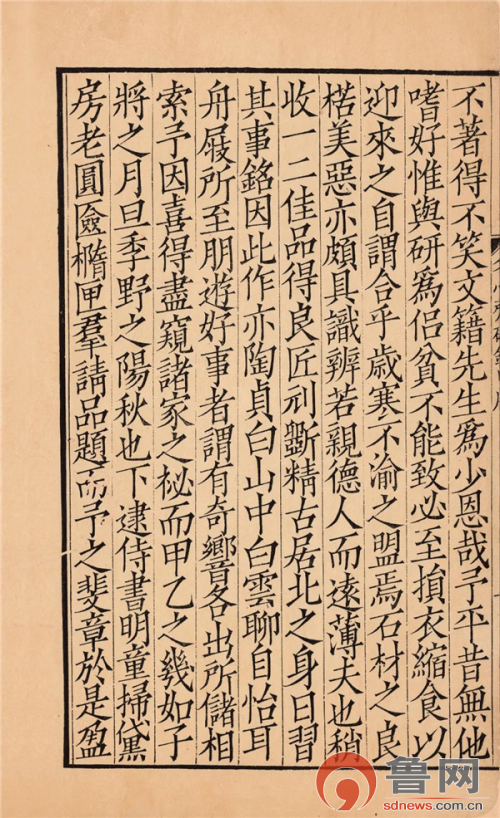 不著得不笑文籍先生爲少恩哉予平昔無他
嗜好惟與研爲侶貧不能致必至損衣縮食以
迎來之自謂合乎歲寒不渝之盟焉石材之良
楛美惡亦頗具識辨若親德人而遠薄夫也稍
收一二佳品得良匠刓斲精古居北之身日習
其事銘因此作亦陶貞白山中白雲聊自怡耳
舟屐所至朋遊好事者謂有奇嚮音各出所儲相
索予因喜得盡窺諸家之祕而甲乙之幾如子
將之月旦季野之陽秋也下逮侍書明童掃黛
房老圓匳橢匣羣請品題而予之斐章於是盈
鲁网
sdnews.com.cn